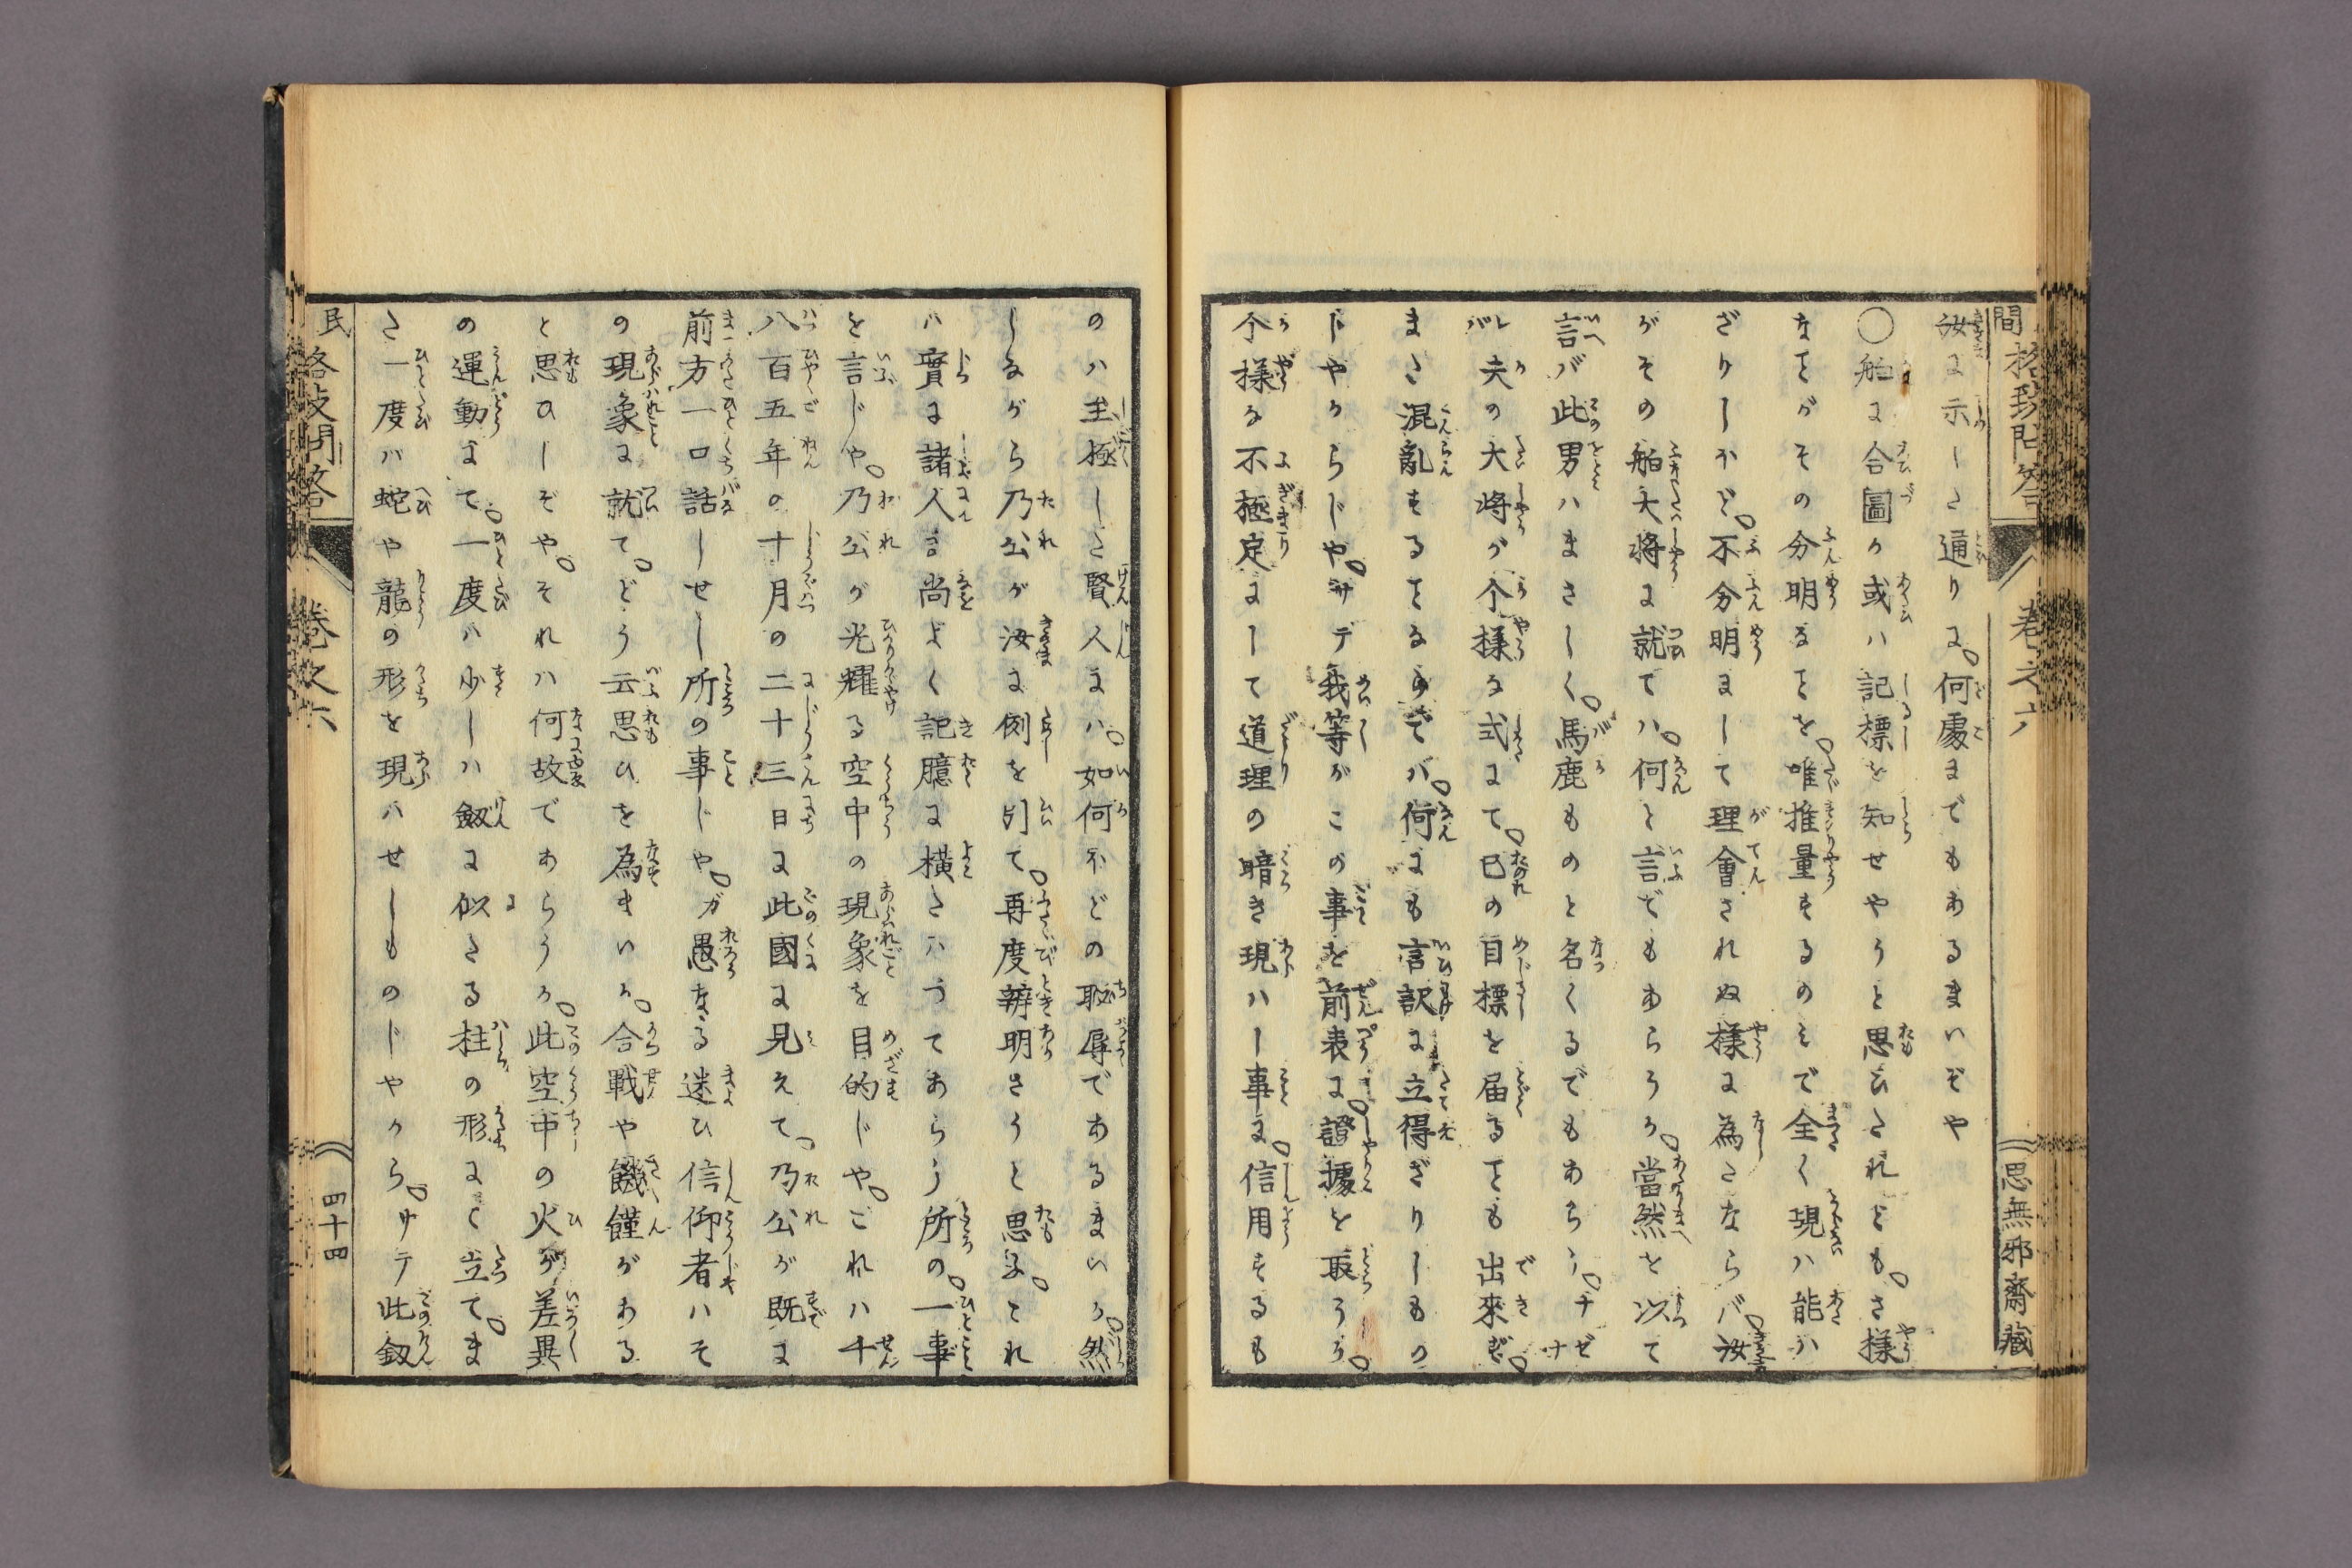 間 格致問答 巻之六 思無邪齋藏
汝に示した通りに。何處までもあるまいぞや
○舩に合圖か或ハ記標を知せやうと思ひたれども。さ様
なをがその分明なをを。唯推量するのミで全く現ハ能ハ
ざりしかど。不分明まして理會されぬ様に為たならバ。汝
がその舩大将に就てハ。何と言でもあらうか。當然を以て
言バ此男ハまさしく。馬鹿ものと名くるでもあらう。ナゼナ
レバ夫の大将が个様な式にて。己の目標を届るをも出來ず。
また混亂するをるゆてバ。何にも言訳に立得ざりしもの
ドやからじや。サデ我等がこの事を前表に證據を取うか。
个様な不極定にして道理の暗き現ハし事に。信用するも
のハ至極した賢人にハ。如何ほどの耻辱であるまいか。然
しながら乃公が汝に例を引て。再度辨明さうと思ふ。とれ
ハ實に諸人も尚よく記臆に横たハつてあらう所の。一事
を言じや。乃公が光耀る空中の現象を目的じや。これハ千
八百五年の十月の二十三日に此國に見えて。乃公が既に
前方一口話しせし所の事じや。ガ愚なる迷ひ信仰者ハそ
の現象に就て。どう云思ひを為すいか。合戰や饑饉がある
と思ひしぞや。それハ何故であらうか。此空中の火が差異
の運動まて。一度ハ少しハ劔に似たる柱の形にく立て。ま
た一度ハ蛇や龍の形を現ハせしものじやから。サテ此劔
民 格致問答 巻之六 四十四